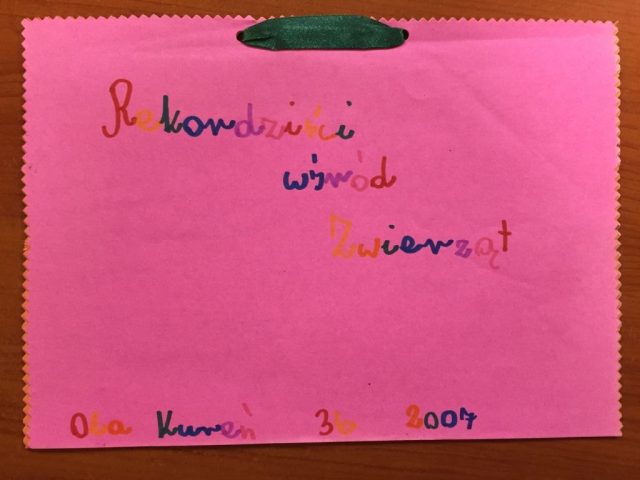 Rekordziści
wśród
Zwierząt
Ola Kureń 3b 2007